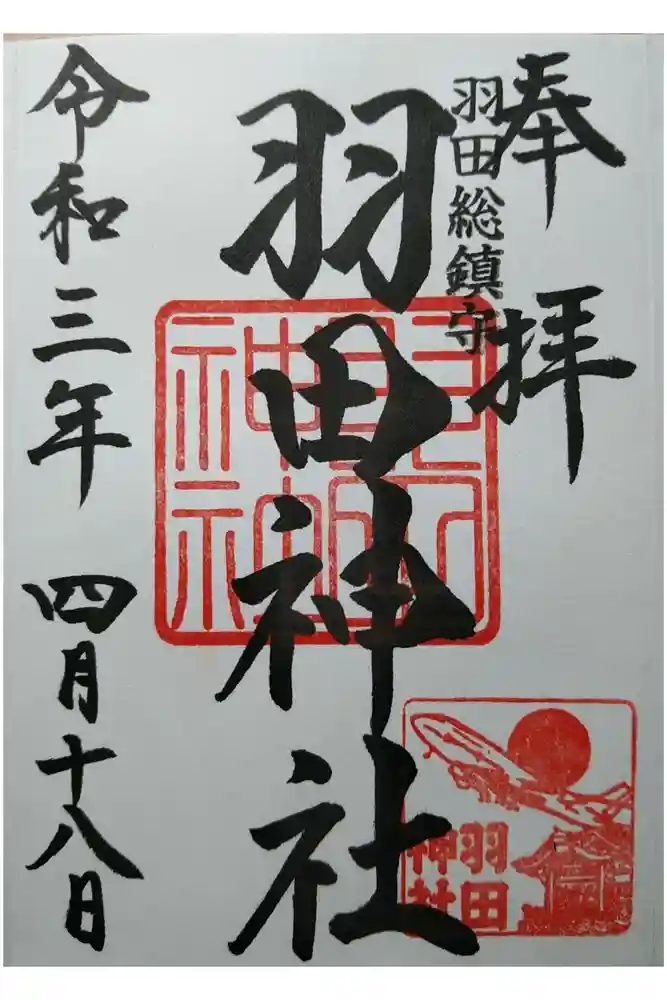 奉拝
羽田総鎮守
羽田神社
令和三年 四月十八日
羽田
神社